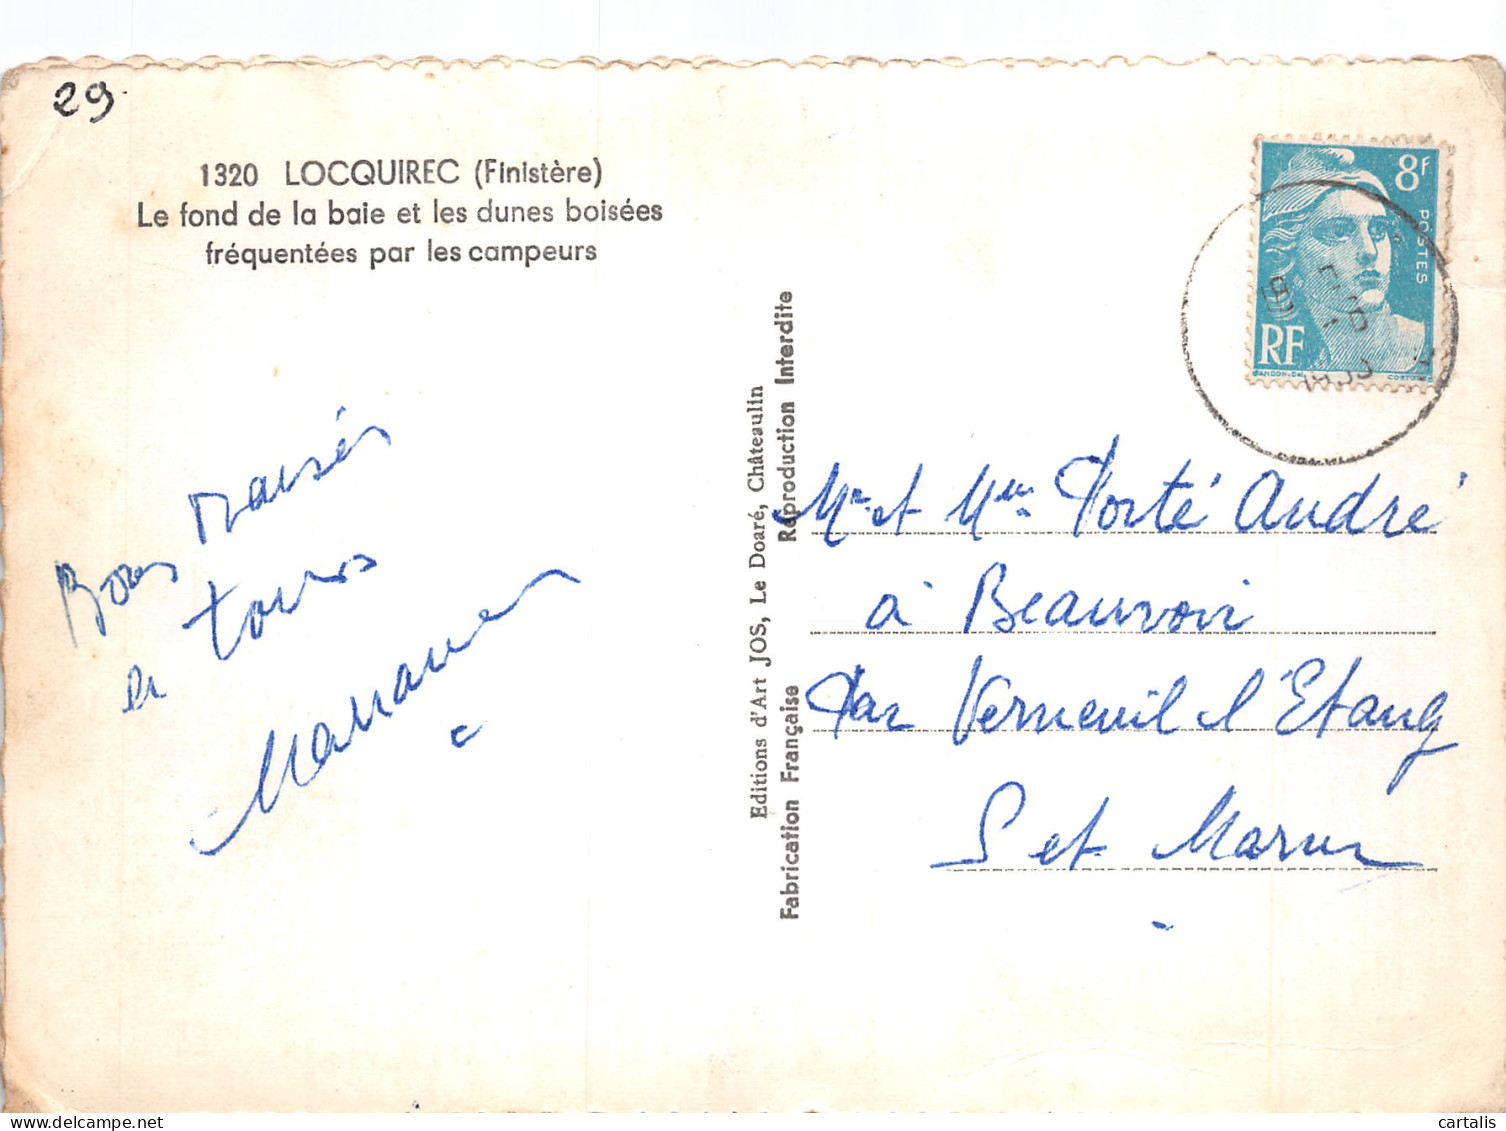 29
1320 LOCQUIREC (Finistère)
Le fond de la baie et les dunes boisées
fréquentées par les campeurs
8F
POSTES
RF
Editions d'Art JOS, Le Doaré, Châteaulin
Fabrication Française Reproduction Interdite
Bons
en tours
Mr et Mme Porté André
à Beauvoir
Par Verneuil l'Etang
S et Marne
cartalis